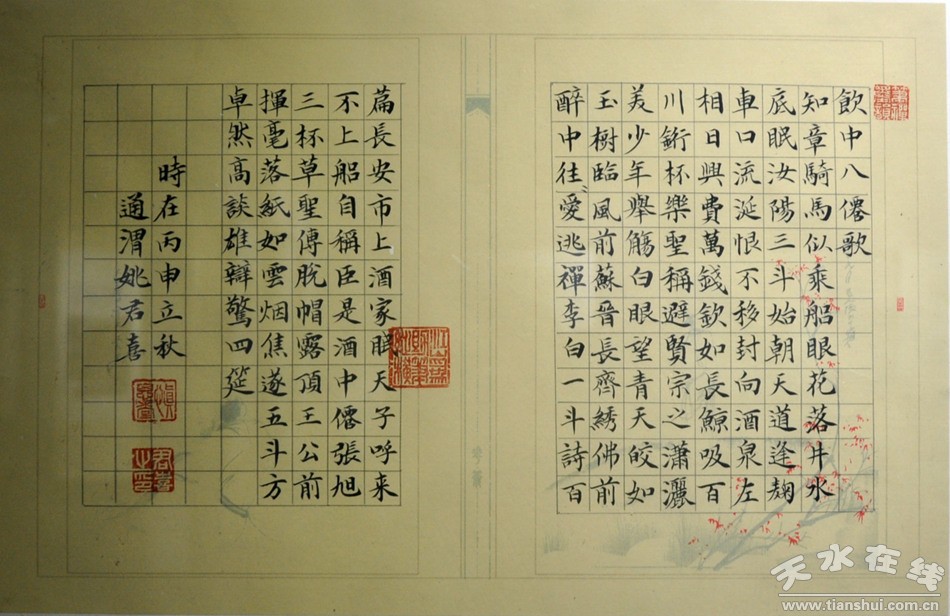 飲中八僊歌
知章騎馬似乘船眼花落井水
底眠汝陽三斗始朝天道逢麹
車口流涎恨不移封向酒泉左
相日興費萬錢欽如長鯨吸百
川銜杯樂聖稱避賢宗之瀟灑
美少年舉觴白眼望青天皎如
玉樹臨風前蘇晉長齊綉佛前
醉中往〻愛逃禪李白一斗詩百
篇長安市上酒家眠天子呼来
不上船自稱臣是酒中僊張旭
三杯草聖傳脫帽露頂王公前
揮毫落紙如雲烟焦遂五斗方
卓然高談雄辯驚四筵
時在丙申立秋
通渭姚君喜
天水在线
www.tianshui.com.cn